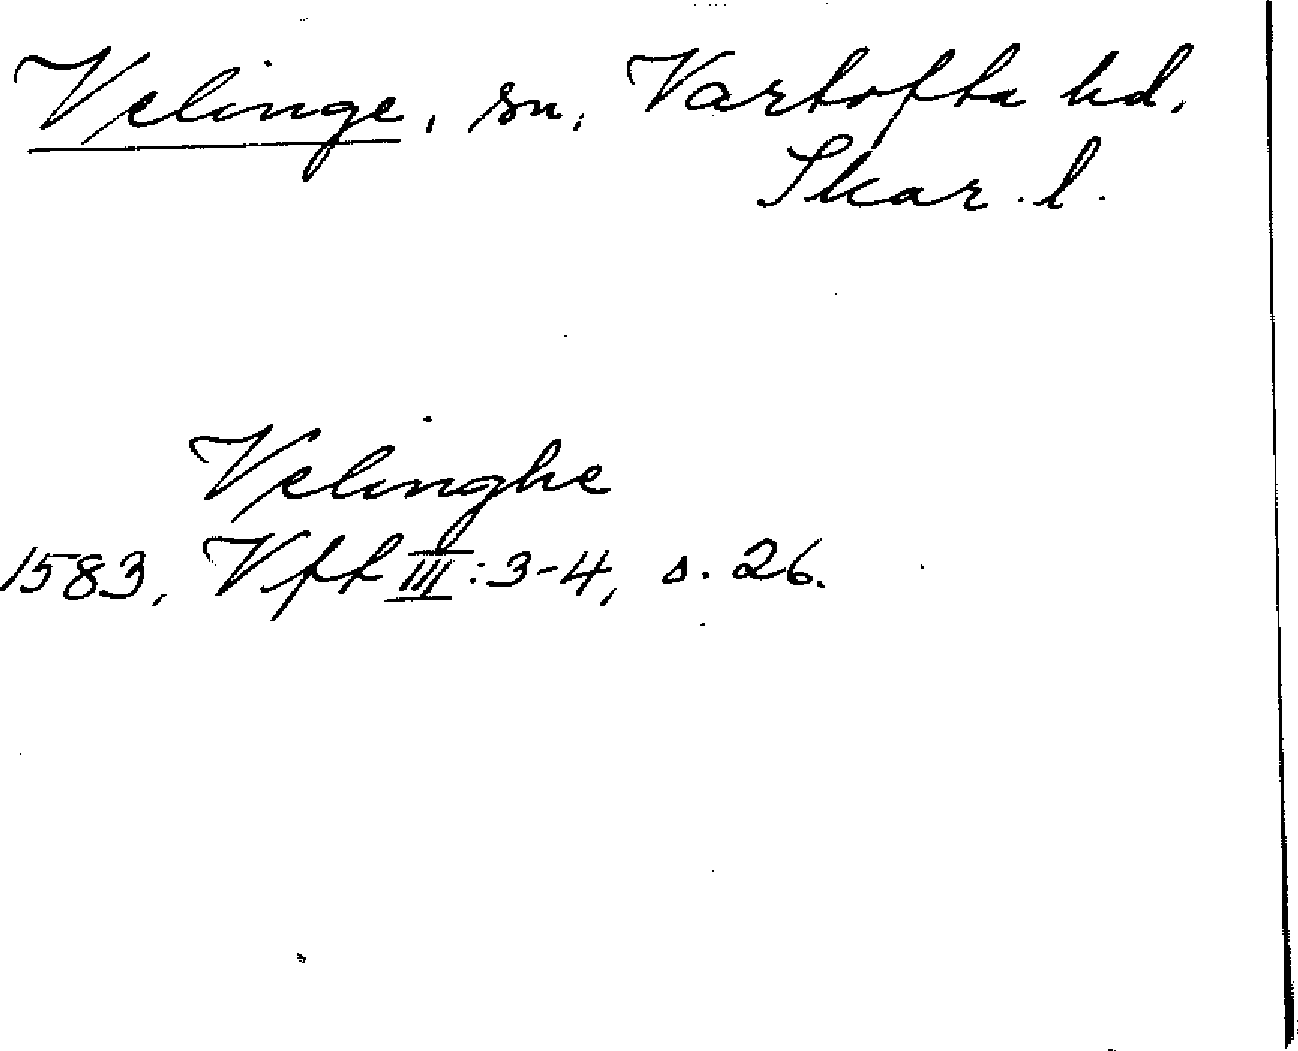 Velinge, sn, Vartofta hd.
Skar. l.
Velinghe
1583, Vfft III:3-4, s. 26.